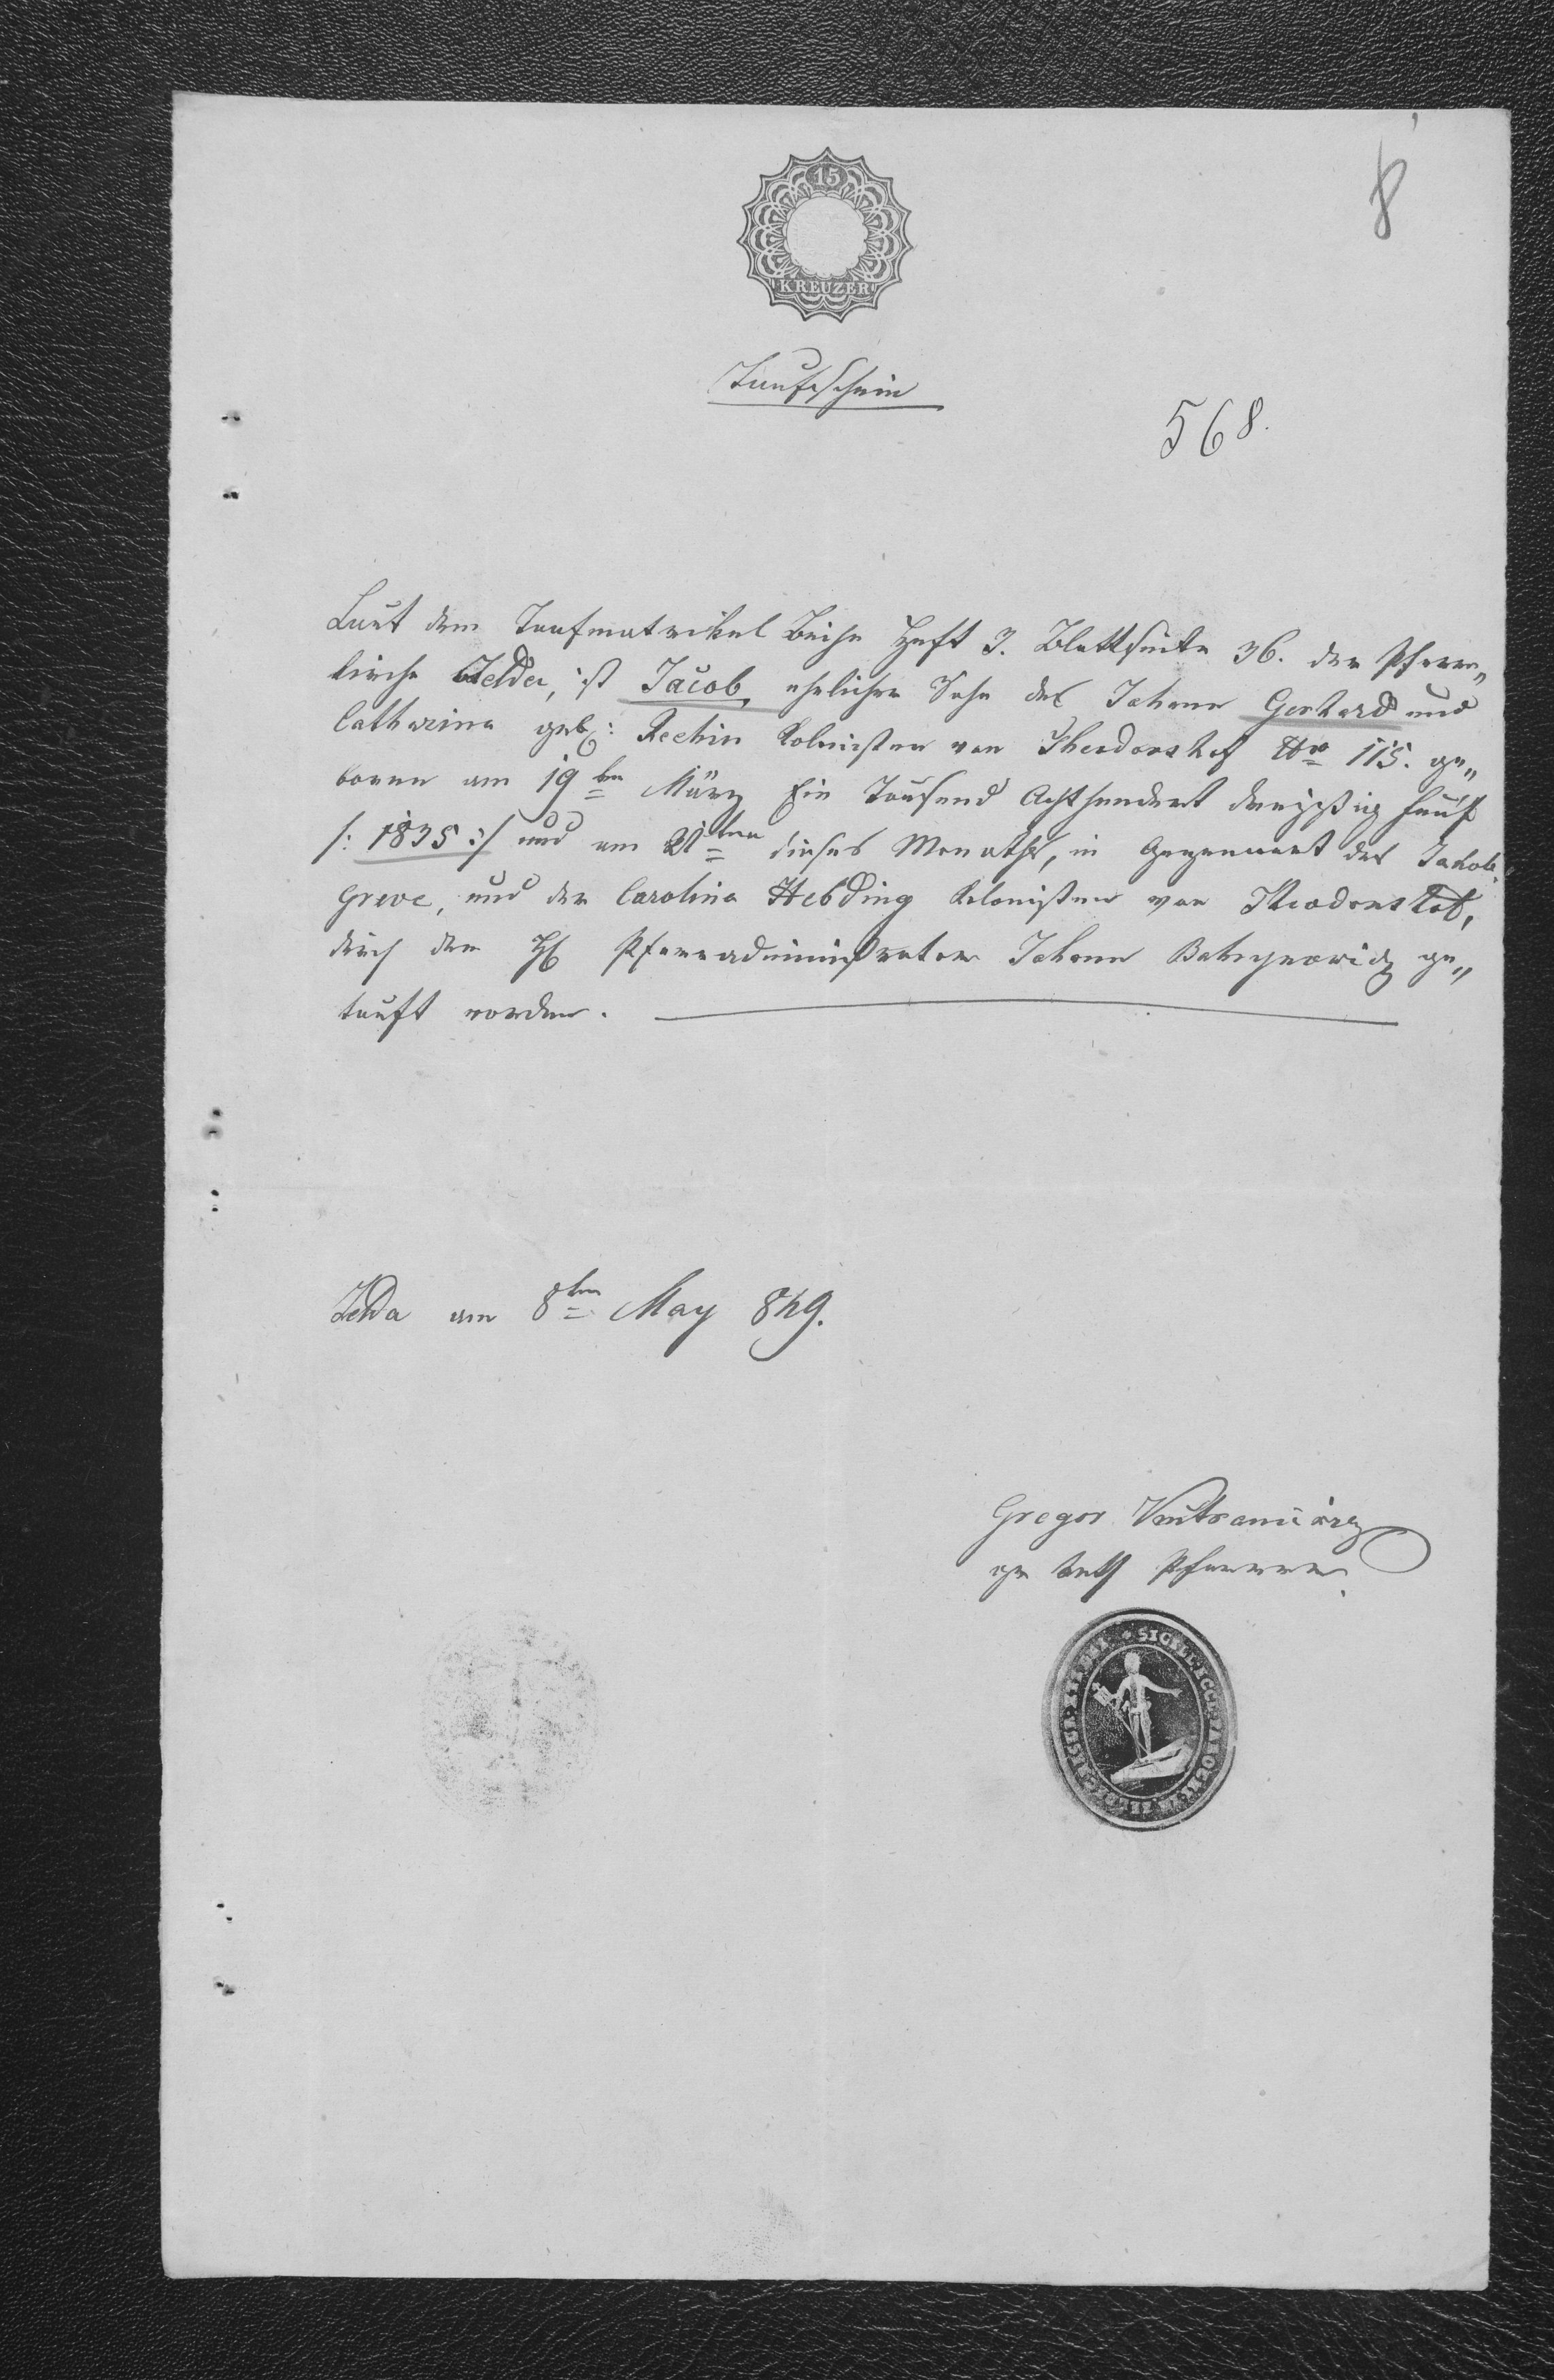 8
15
KREUZER
Taufschein
568.
Laut dem Taufmatrikel Buche Heft 3. Blattseite 36. der Pfarr„
kirche Zelder, ist Jacob ehelicher Sohn des Johann Gerhard und
Catharina geb: Rechin Kolonisten von Theodorshof Nro 115. ge„
boren am 19ten März Ein Tausend Achthundert dreißig fünf
/: 1835 :/ und am 21ten dieses Monaths, in Gegenwart des Jakob
Greve, und der Carolina Hebding Kolonisten von Theodorshof,
durch den H Pfarradministrator Johann ge„
tauft worden.
Zelda am 8ten May 849.
Gregor
Pfarrer
SIGILL